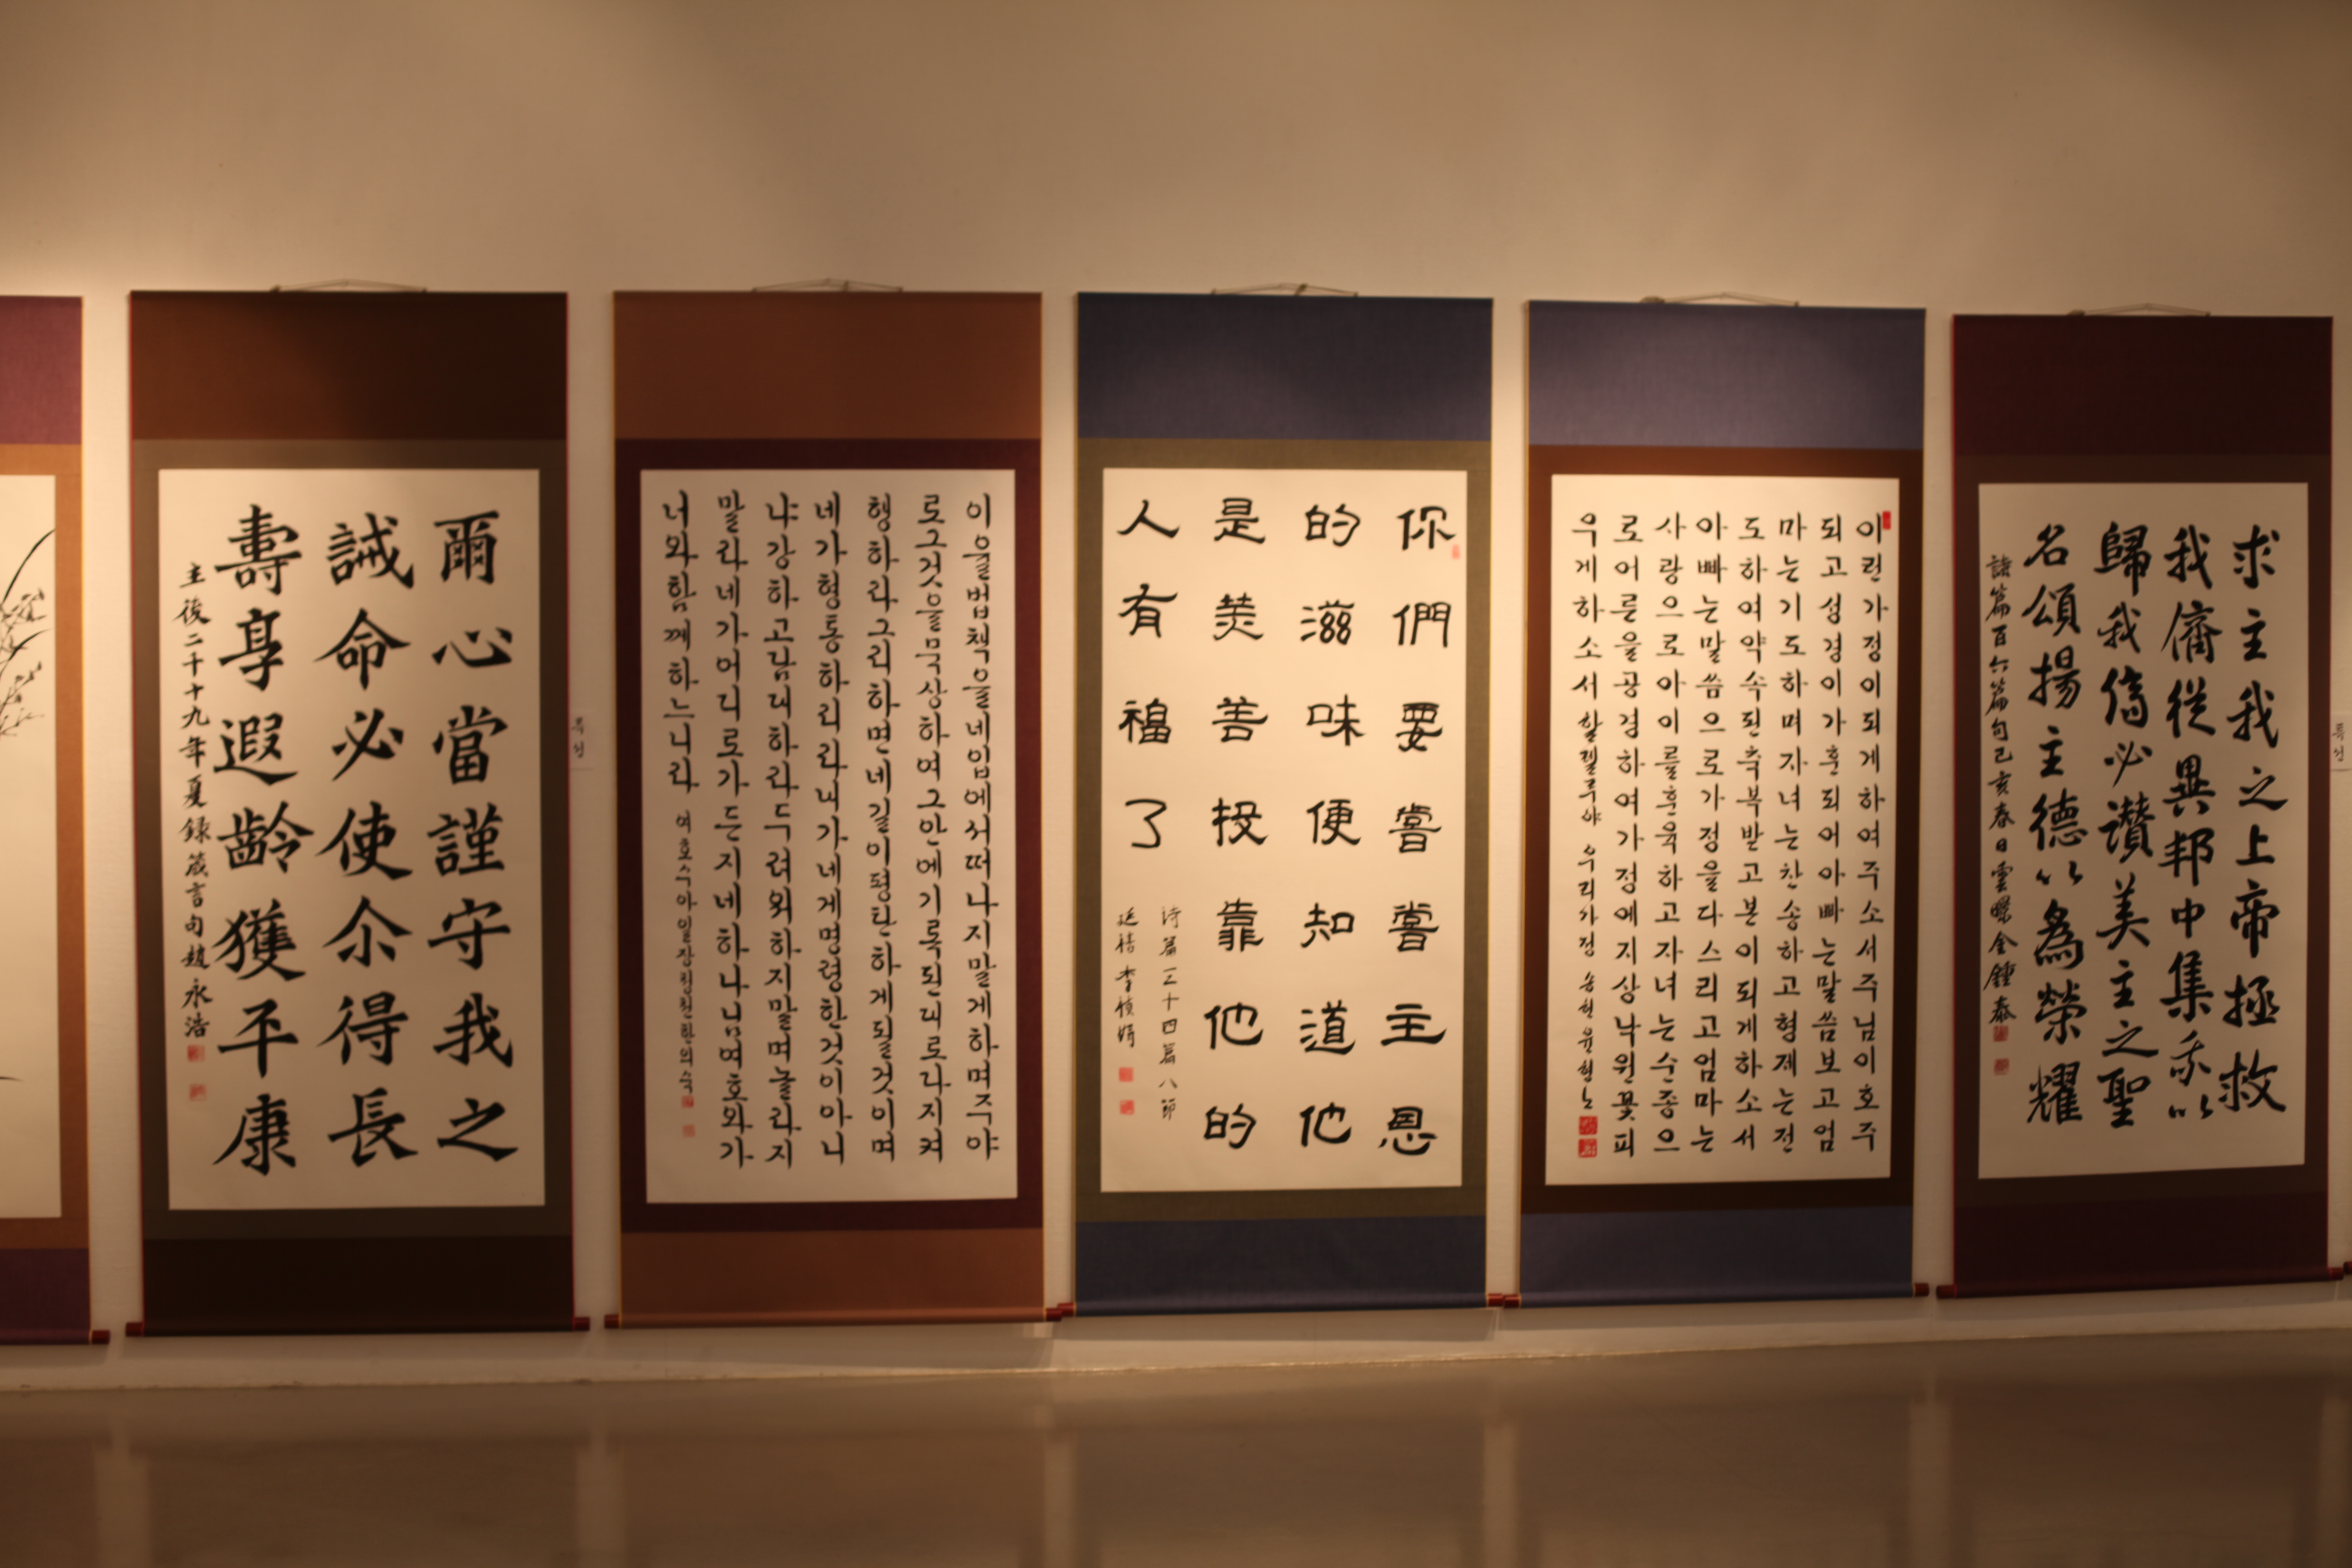 爾心當謹守我之
誡命必使尒得長
壽享遐齡獲平康
主後二千十九年夏錄箴言句趙永浩
특선
이율법책을네입에서떠나지말게하며주야
로그것을묵상하여그안에기록된대로다지켜
행하라그리하면네길이평탄하게될것이며
네가형통하리라내가네게명령한것이아니
냐강하고담대하라두려워하지말며놀라지
말라네가어디로가든지네하나님여호와가
너와함께하느니라 여호수아일장
你們要嘗嘗主恩
的滋味便知道他
是美善投靠他的
人有福了
詩篇三十四篇八節
이런가정이되게하여주소서주님이호주
되고성경이가훈되어아빠는말씀보고엄
마는기도하며자녀는찬송하고형제는전
도하여약속된축복받고본이되게하소서
아빠는말씀으로가정을다스리고엄마는
사랑으로아이를훈육하고자녀는순종으
로어른을공경하여가정에지상낙원꽃피
우게하소서할렐루야 우리가정 송헌윤형노
求主我之上帝拯救
我儕從異邦中集以
歸我儕必讚美主之聖
名頌揚主德以爲榮耀
詩篇百六篇句己亥春日雲金鍾泰
특선